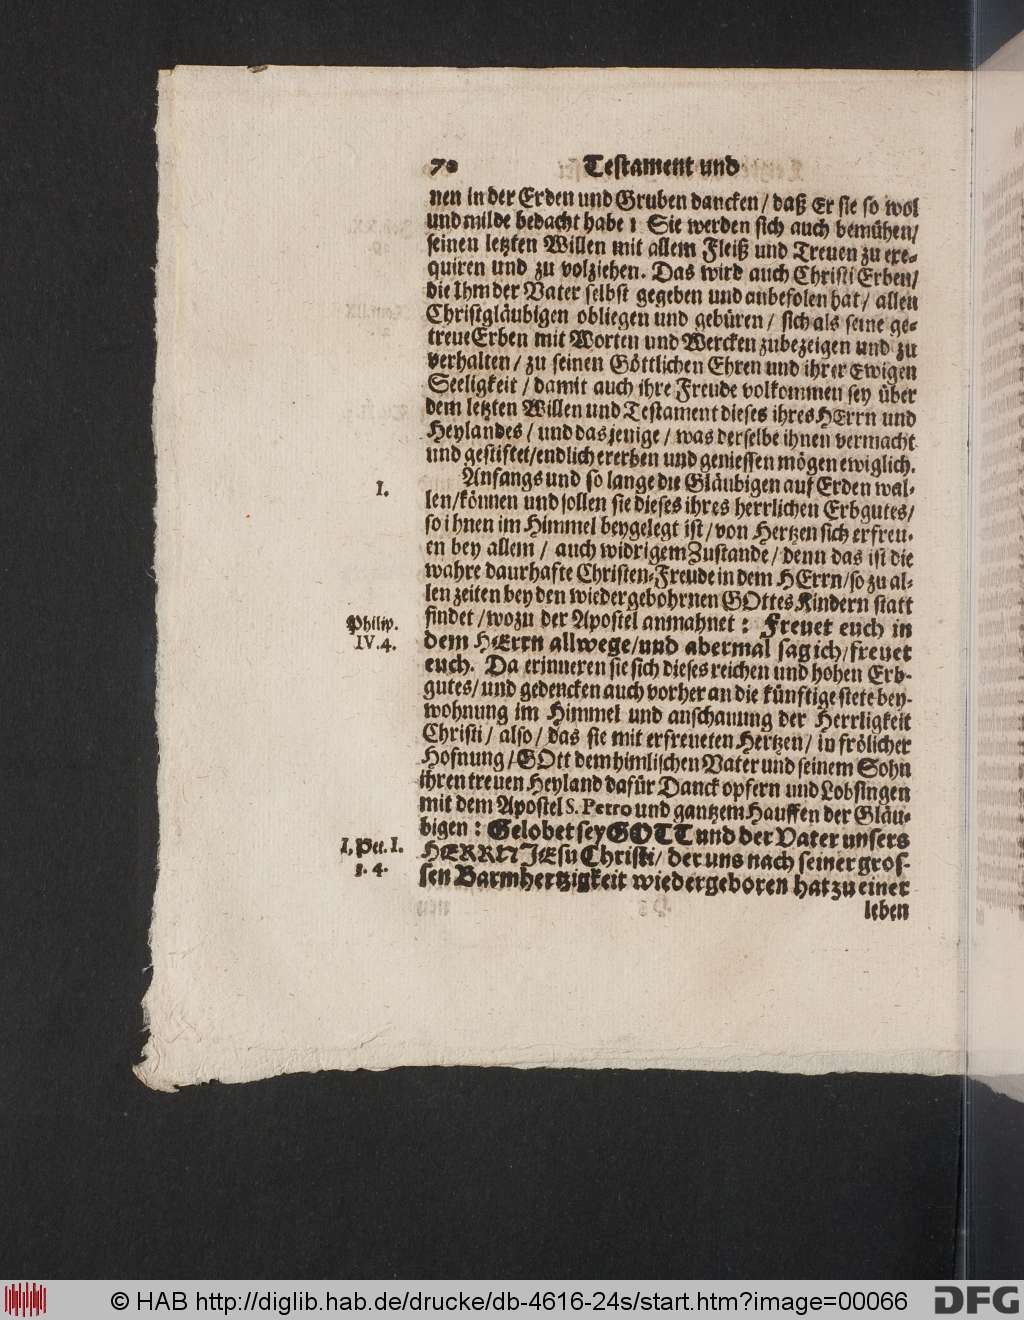 70 Testament und
nen in der Erden und Gruben dancken / daß Er sie so wol
und milde bedacht habe: Sie werden sich auch bemühen/
seinen letzten Willen mit allem Fleiß und Treuen zu exe-
quiren und zu volziehen. Das wird auch Christi Erben/
die Ihm der Vater selbst gegeben und anbefolen hat / allen
Christgläubigen obliegen und gebüren / sich als seine ge-
treue Erben mit Worten und Wercken zubezeigen und zu
verhalten / zu seinen Göttlichen Ehren und ihrer Ewigen
Seeligkeit / damit auch ihre Freude volkommen sey über
dem letzten Willen und Testament dieses ihres HErrn und
Heylandes / und dasjenige / was derselbe ihnen vermacht
und gestiftet/endlich ererben und geniessen mögen ewiglich.
I. Anfangs und so lange die Gläubigen auf Erden wal-
len/können und sollen sie dieses ihres herrlichen Erbgutes/
so ihnen im Himmel beygelegt ist / von Hertzen sich erfreu-
en bey allem / auch widrigem Zustande / denn das ist die
wahre daurhafte Christen-Freude in dem HErrn/so zu al-
len zeiten bey den wiedergebohrnen GOttes Kindern statt
Philip. findet / wozu der Apostel anmahnet: Freuet euch in
IV. 4. dem HErrn allwege/und abermal sag ich/freuet
euch. Da erinneren sie sich dieses reichen und hohen Erb-
gutes/ und gedencken auch vorher an die künftige stete bey-
wohnung im Himmel und anschauung der Herrligkeit
Christi / also / das sie mit erfreueten Hertzen / in frölicher
Hofnung / GOtt dem himlischen Vater und seinem Sohn
ihren treuen Heyland dafür Danck opfern und Lobsingen
mit dem Apostel S. Petro und gantzem Hauffen der Gläu-
bigen: Gelobet sey GOTT und der Vater unsers
I. Pet. I. HERRN JEsu Christi/ der uns nach seiner gros-
3. 4. sen Barmhertzigkeit wiedergeboren hat zu einer
leben
© HAB http://diglib.hab.de/drucke/db-4616-24s/start.htm?image=00066
DFG